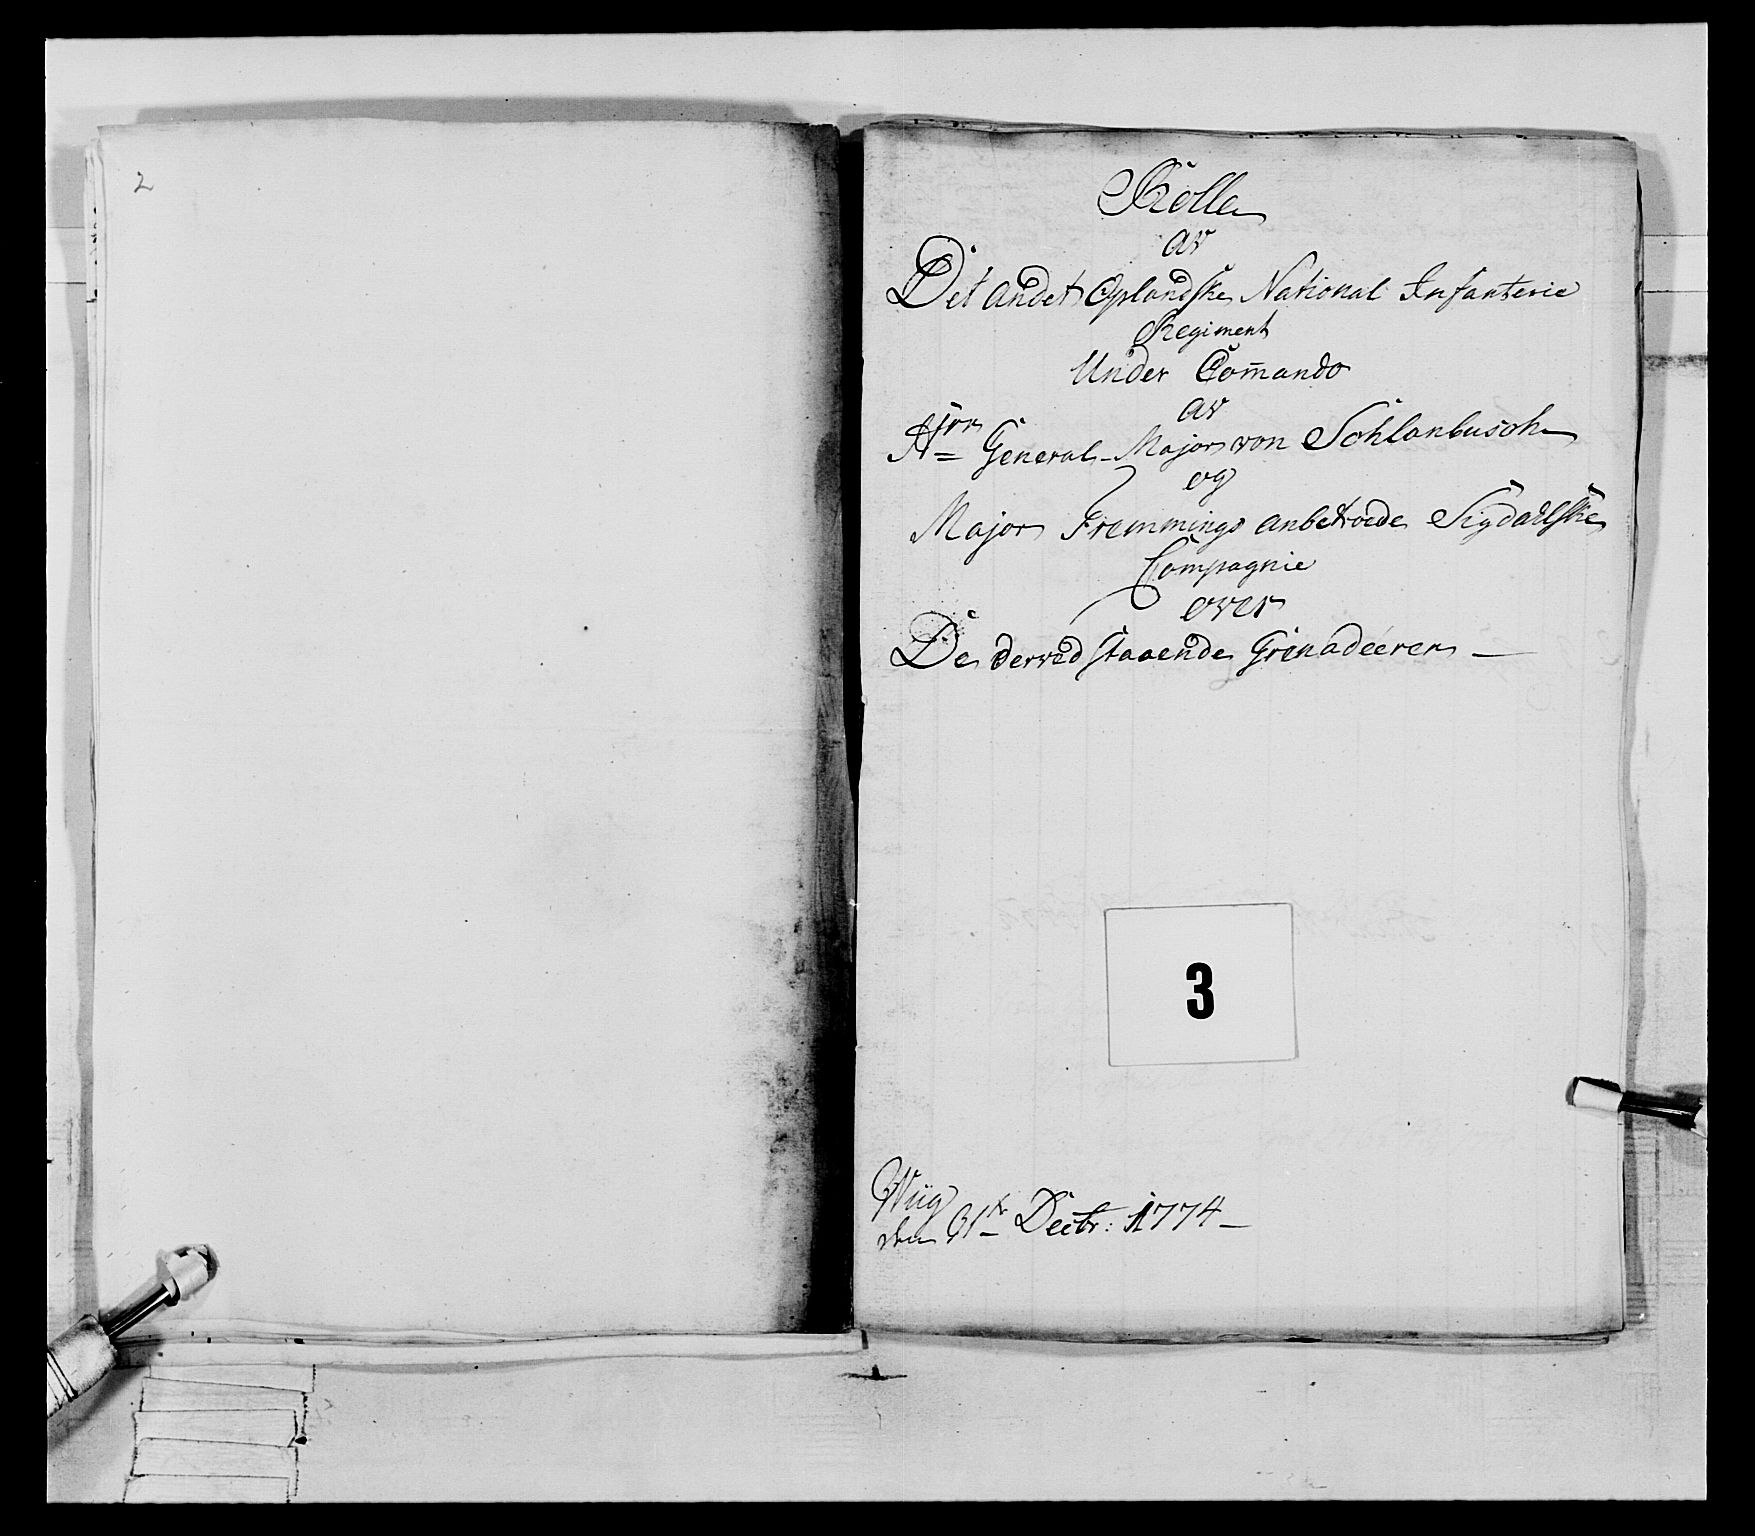 2
Rolle
av
Det andet Oplandske National Infanterie
Regiment
Under Com̄ando
av
Hrr General-Major von Schlanbusch
og
Major Fremmings anbetroede Sigdalske
Compagnie
over
De derved staaende Grenadeerer —
3
Wiig
den 31te Decbr: 1774 —